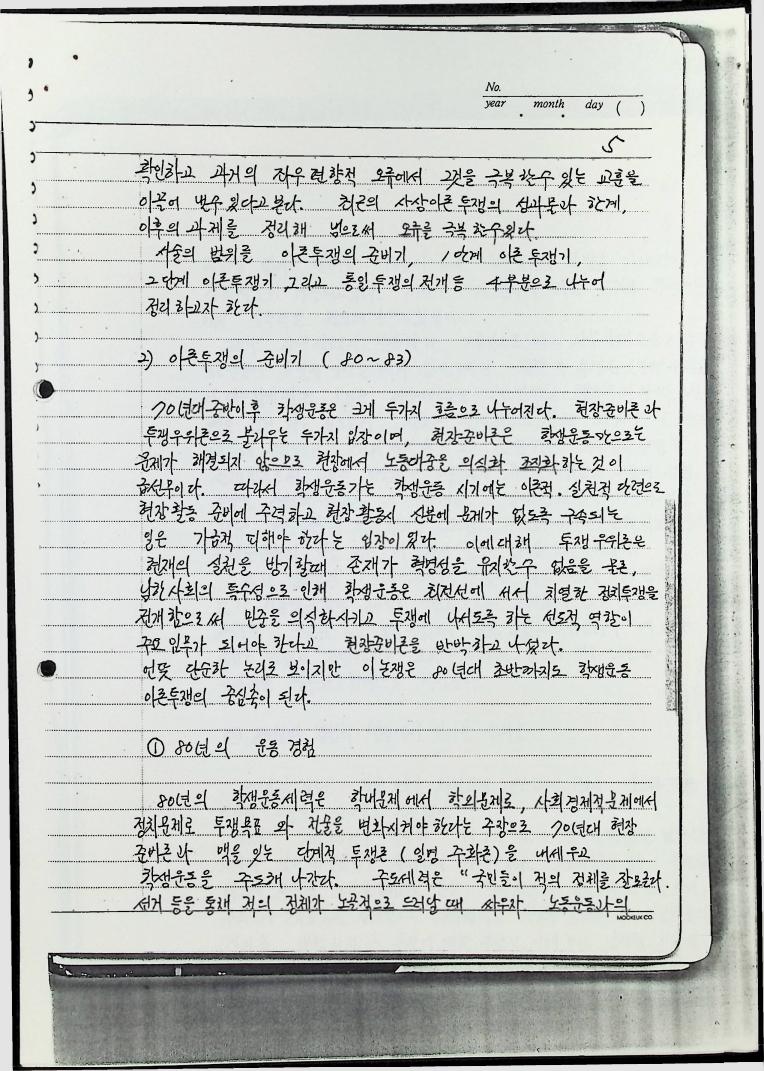 No.
year month day ( )
5
확인하고 과거의 좌우편향적 오류에서 그것을 극복할수 있는 교훈을
이끌어 낼수 있다고 본다. 최근의 사상이론 투쟁의 성과물과 한계,
이후의 과제를 정리해 냄으로써 오류를 극복할수있다.
서술의 범위를 이론투쟁의 준비기, 1단계 이론투쟁기,
2단계 이론투쟁기, 그리고 통일투쟁의 전개 등 4부분으로 나누어
정리하고자 한다.
2) 이론투쟁의 준비기 ( 80~83)
70년대 중반이후 학생운동은 크게 두가지 흐름으로 나누어진다. 현장준비론과
투쟁우위론으로 불리우는 두가지 입장이며, 현장준비론은 학생운동만으로는
문제가 해결되지 않으므로 현장에서 노동대중을 의식화 조직화하는 것이
급선무이다. 따라서 학생운동가는 학생운동 시기에는 이론적. 실천적 단련으로
현장활동 준비에 주력하고 현장활동시 신분에 문제가 없도록 구속되는
일은 가급적 피해야 한다는 입장이었다. 이에대해 투쟁우위론은
현재의 실천을 방기할때 존재가 혁명성을 유지할수 없음을 물론,
남한사회의 특수성으로 인해 학생운동은 최전선에 서서 치열한 정치투쟁을
전개함으로써 민중을 의식화시키고 투쟁에 나서도록 하는 선도적 역할이
주요임무가 되어야 한다고 현장준비론을 반박하고 나섰다.
언뜻 단순한 논리로 보이지만 이논쟁은 80년대 초반까지도 학생운동
이론투쟁의 중심축이 된다.
① 80년의 운동 경험
80년의 학생운동세력은 학내문제에서 학외문제로, 사회경제적문제에서
정치문제로 투쟁목표와 전술을 변화시켜야 한다는 주장으로 70년대 현장
준비론과 맥을 잇는 단계적 투쟁론 (일명 주화론)을 내세우고
학생운동을 주도해 나간다. 주도세력은 "국민들이 적의 정체를 잘모른다.
선거 등을 통해 적의 정체가 노골적으로 드러날 때 싸우자. 노동운동과의
MOOKEUK CO.